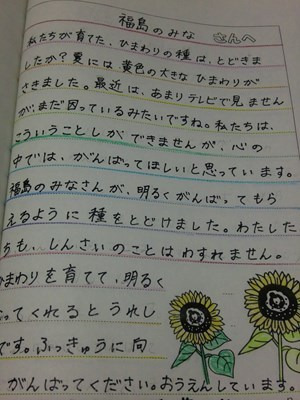 福島のみな さんへ
私たちが育てた、ひまわりの種は、とどきま
したか？夏には、黄色の大きな ひまわりが
さきました。最近は、あまりテレビで見ません
が、まだ困っているみたいですね。私たちは、
こういうことしか、できませんが、心の
中では、がんばってほしいと思っています。
福島のみなさんが、明るくがんばってもら
えるように 種をとどけました。わたした
ちも、しんさいのことはわすれません。
ひまわりを育てて、明るく
ってくれると うれし
です。ふっきゅうに向
がんばってください。おうえんしています。